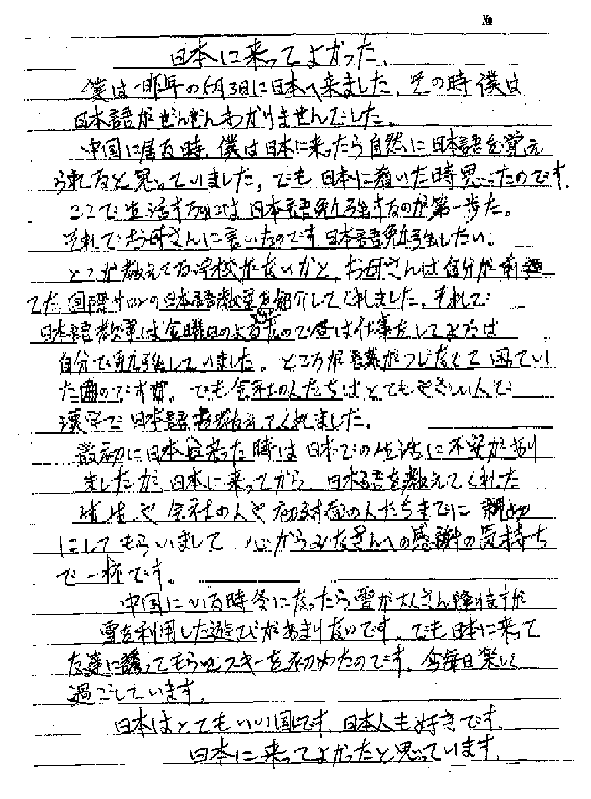 №
日本に来ってよかった。
僕は一昨年の6月3日に日本へ来ました。その時僕は
日本語がぜんぜんわかりませんでした。
中国に居る時、僕は日本に来ったら自然に日本語を覚え
られると思っていました。でも日本に着いた時思ったのです。
ここで生活するには日本語勉強するのが第一歩だ。
それでお母さんに言いたのです日本語勉強したい。
どこか教えてる学校がないかと、お母さんは自分が
てた国際 の日本語教室を紹介してくれました。それで
日本語教室は金曜日のよる なので昼は仕事をしてよるは
自分で勉強していました。ところが言葉がつじなくて困ってい
た のです 。でも会社の人たちはとてもやさしい人で
で日本語 教えてくれました。
最初に日本 来った時は日本での生活に不安があり
ましたが、日本に来ってから、日本語を教えてくれた
先生や会社の人や初対面の人たちまでに親切
にしてもらいまして 心からみなさんへの感謝の気持ち
で一杯です。
中国にいる時冬になったら雪がたくさん降ますが
雪を利用した遊びがあまりないです。でも日本に来って
友達に誘ってもらいスキーを初めたのです。今毎日楽しく
過ごしています。
日本はとてもいい国です。日本人も好きです。
日本に来ってよかったと思っています。